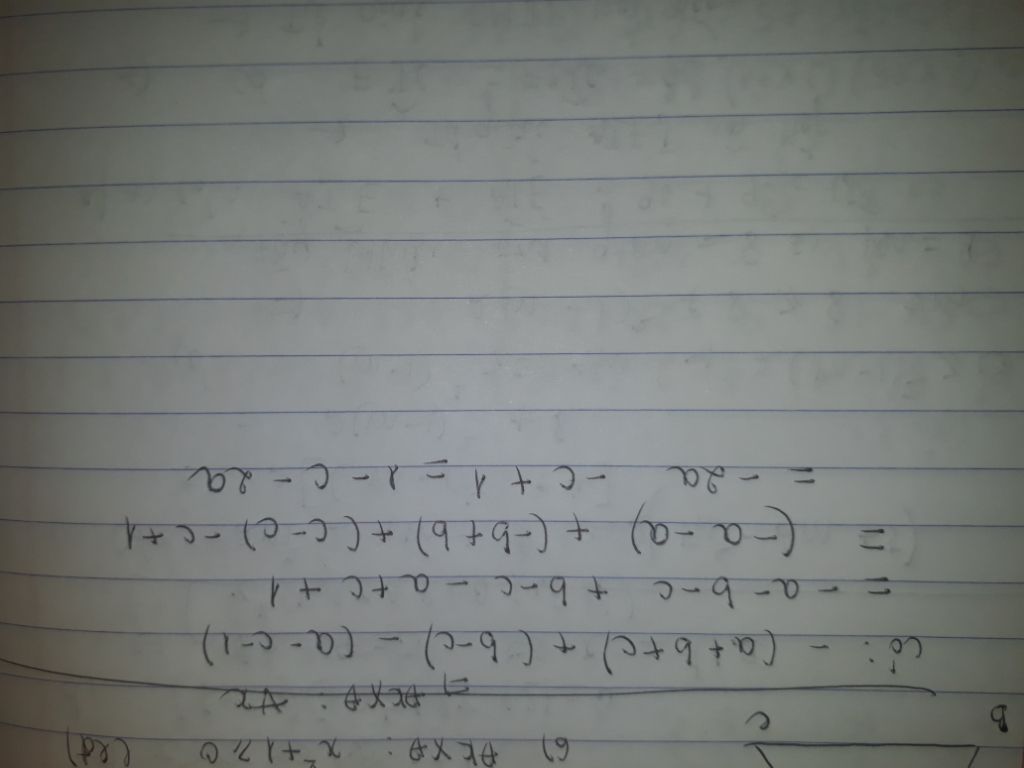 B C
6) ĐKXĐ: x² + 1 ≥ 0 (lđ)
⇒ ĐKXĐ: ∀x
Có: - (a + b + c) + (b - c) - (a - c - 1)
= - a - b - c + b - c - a + c + 1
= (- a - a) + (- b + b) + (c - c) - c + 1
= - 2a - c + 1 = 1 - c - 2a